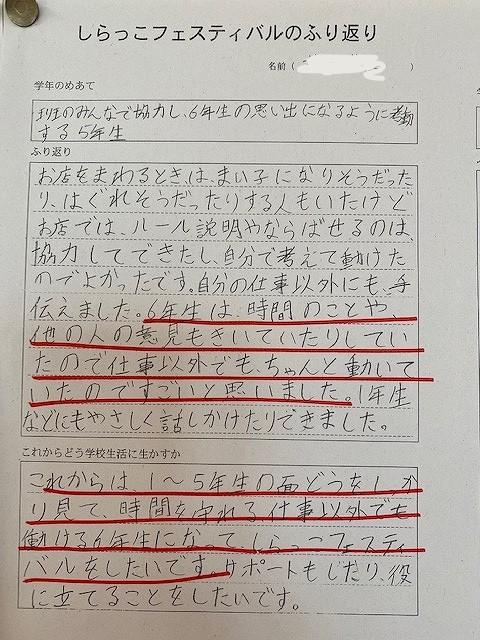 しらっこフェスティバルのふり返り
名前（　　　）
学年のめあて
班のみんなで協力し、6年生の思い出になるように考動
する5年生
ふり返り
お店をまわるときは、まい子になりそうだった
り、はぐれそうだったりする人もいたけど
お店では、ルール説明やならばせるのは、
協力してできたし、自分で考えて動けた
のでよかったです。自分の仕事以外にも、手
伝えました。6年生は時間のことや、
他の人の意見もきいていたりしてい
たので仕事以外でも、ちゃんと動いて
いたのですごいと思いました。1年生
などにもやさしく話しかけたりできました。
これからどう学校生活に生かすか
これからは、1〜5年生の面どうをしっか
り見て、時間を守れる仕事以外でも
動ける6年生になって、しらっこフェスティ
バルをしたいです。サポートもしたり、役
に立てることをしたいです。